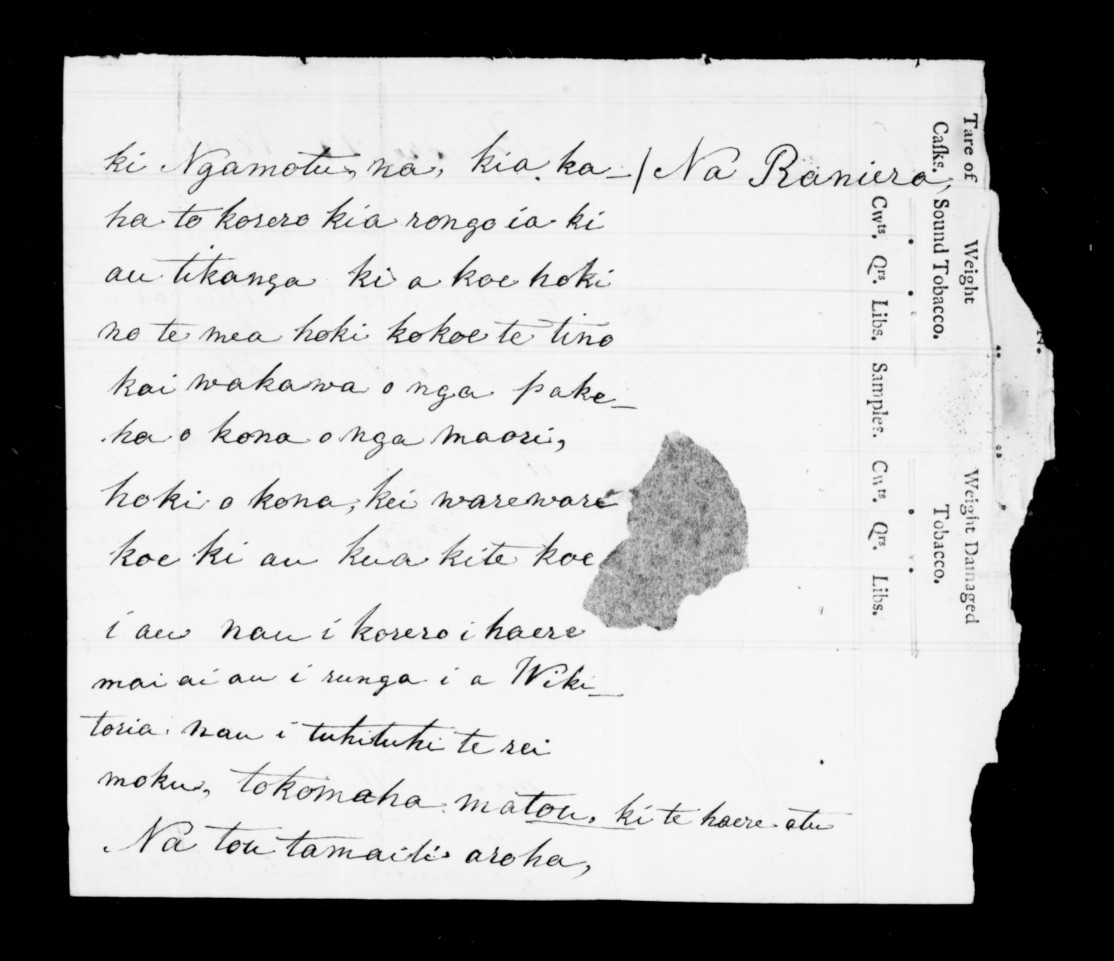 ki Ngamotu, na, kia ka_
ha to korero kia rongo ia ki
au tikanga ki a koe hoki
no te mea hoki ko koe te tino
kai wakawa o nga pake_
ha o kona o nga maori,
hoki o kona, kei wareware
koe ki au kua kite koe
i au nau i korero i haere
mai ai au i runga i a Wiki_
toria nau i tuhituhi te rei
moku, tokomaha matou. ki te haere atu
Na tou tamaiti aroha,
/ Na Raniera,
Tare of Casks.
Weight Sound Tobacco.
Weight Damaged Tobacco.
Cwts. Qrs. Libs. Samples. Cwts. Qrs. Libs.
N.